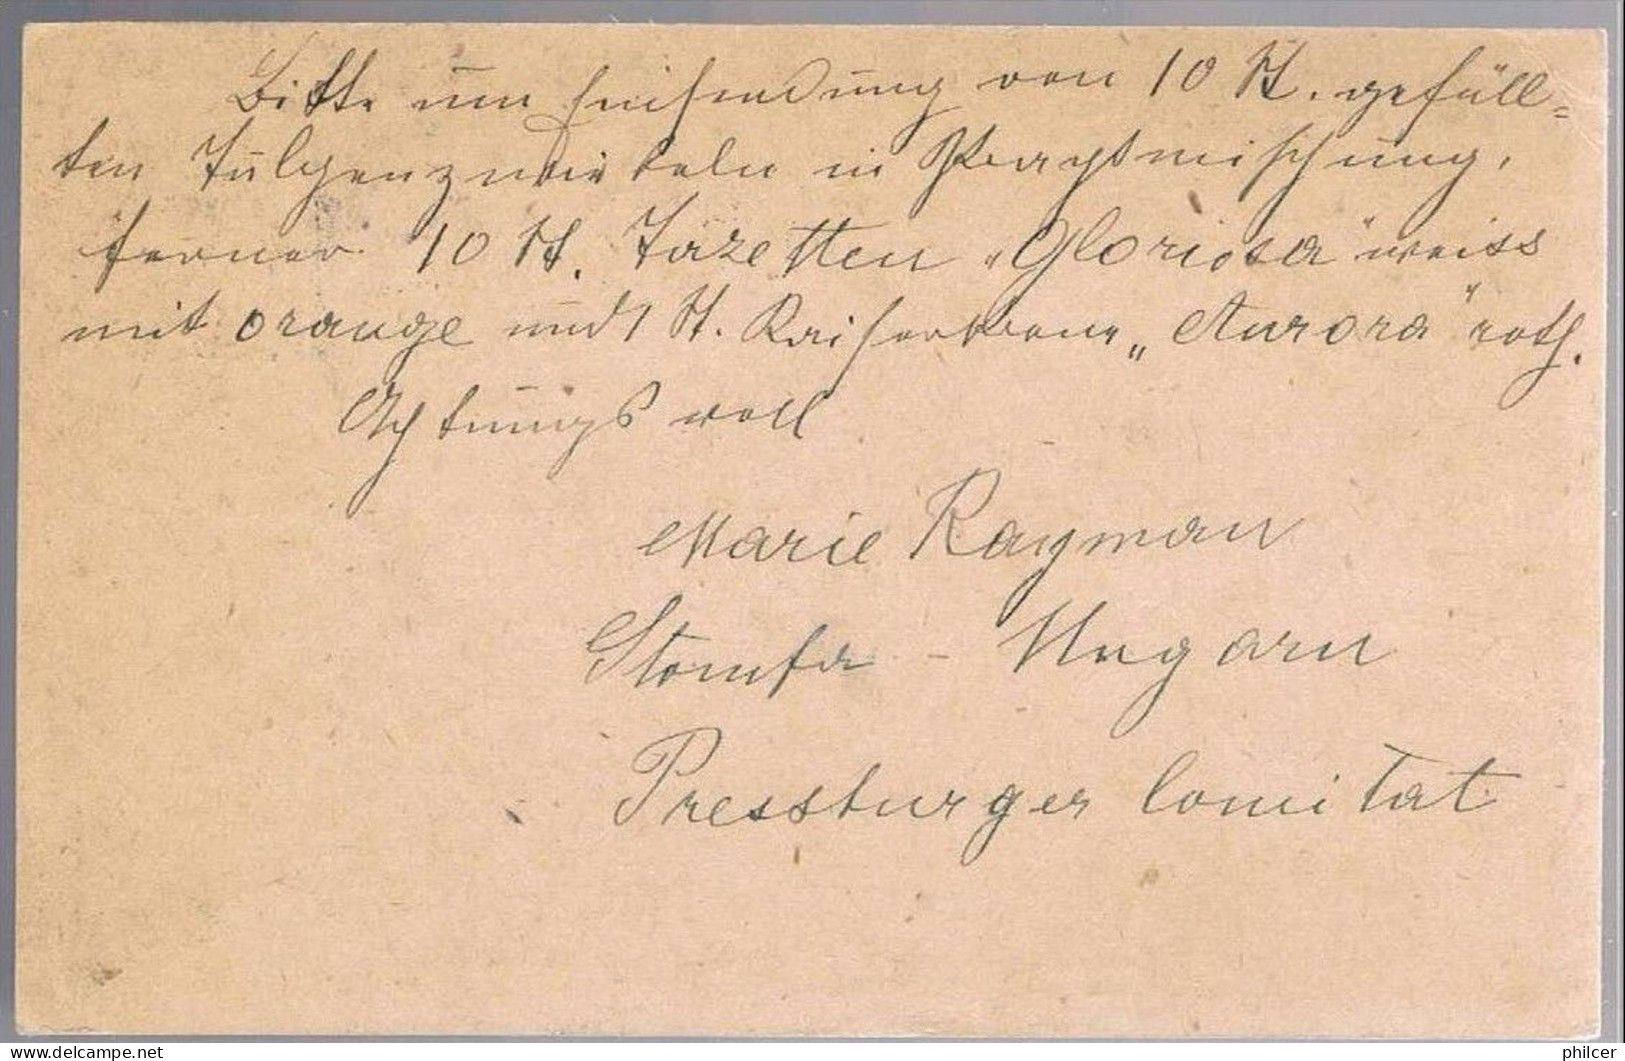 Bitte um Einsendung von 10 St. gefüll-
ten Tulpenzwiebeln in Prachtmischung,
ferner 10 St. Tazetten „Gloriosa" weiss
mit orange und 1 St. Kaiserkrone „Aurora" roth.
Achtungsvoll
Marie Rayman
Stomfa - Ungarn
Pressburger Comitat
philcer